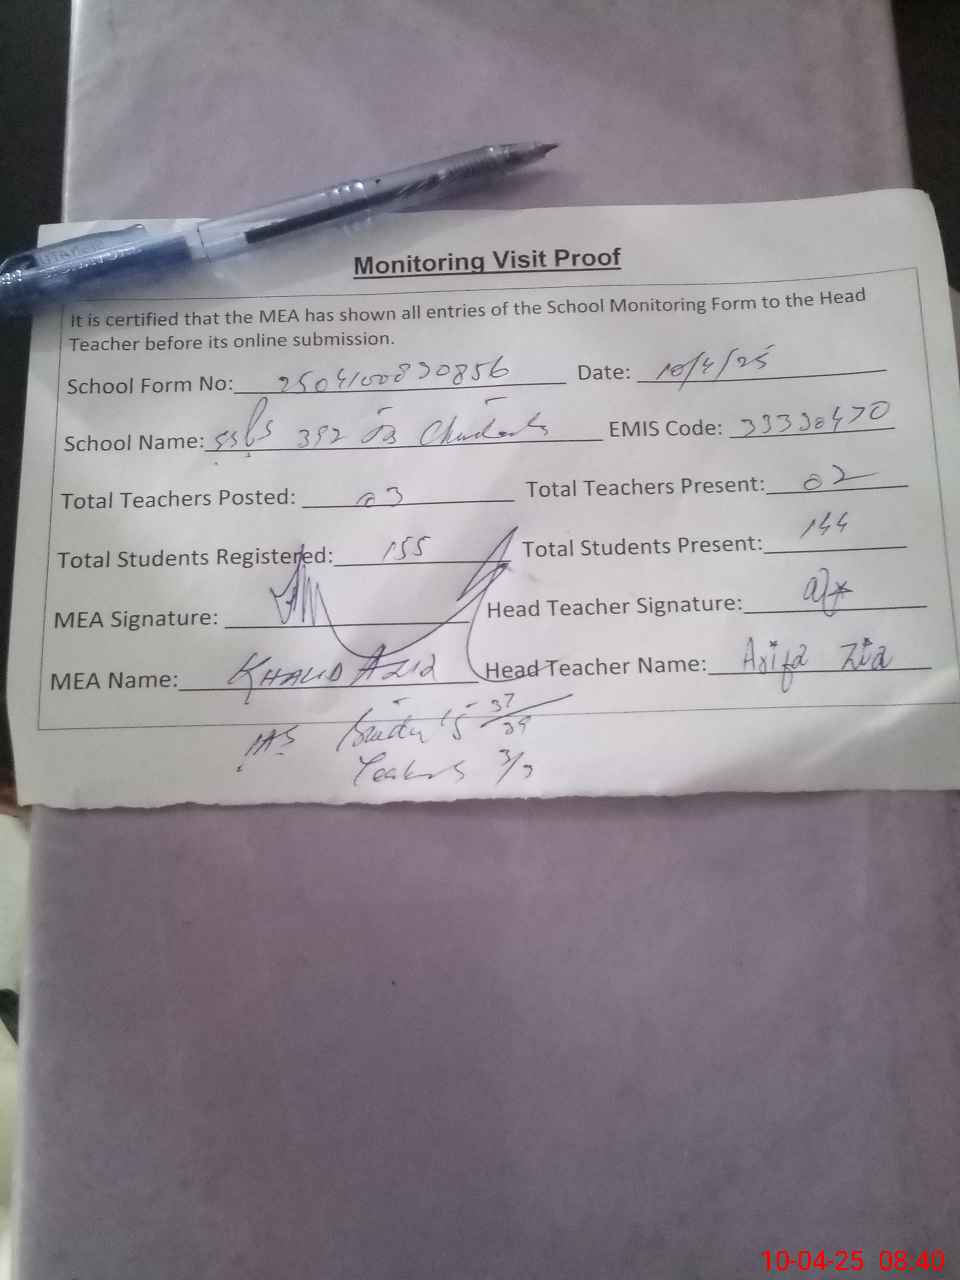 Monitoring Visit Proof
It is certified that the MEA has shown all entries of the School Monitoring Form to the Head
Teacher before its online submission.
School Form No: Date: 10/4/25
School Name: 392 JB EMIS Code:
Total Teachers Posted: 03 Total Teachers Present: 02
Total Students Registered: 155 Total Students Present: 144
MEA Signature: Head Teacher Signature:
MEA Name: KHALID AZIZ Head Teacher Name: Arifa Zia
37
39
Teachers 3/3
10-04-25 08:40